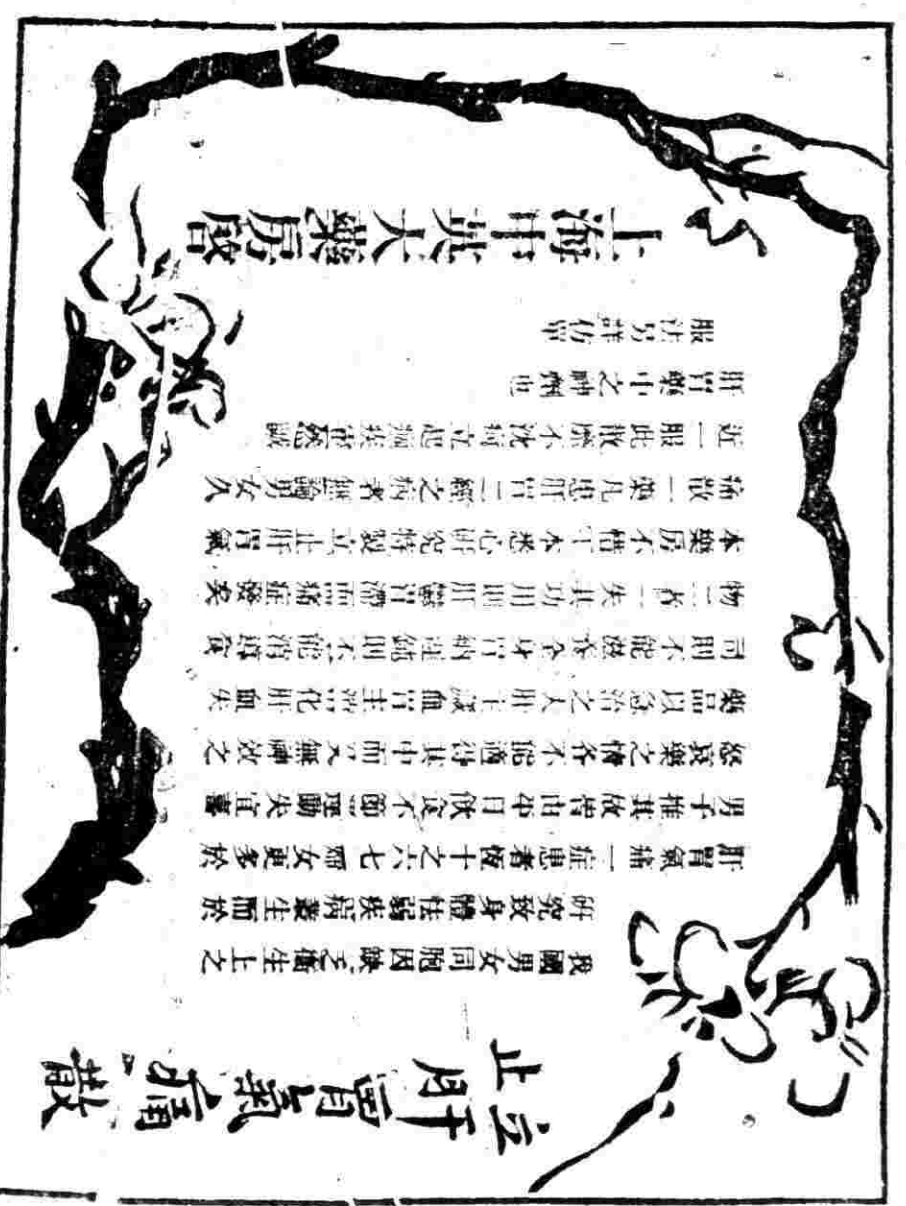 立止肝胃氣痛散
我國男女同胞因缺乏衛生上之
研究致身體怯弱疾病叢生而於
肝胃氣痛一症患者恆十之六七婦女更多於
男子推其故皆由平日飲食不節運動失宜喜
怒哀樂之情各不能適得其中而又無神效之
藥品以急治之夫肝主藏血胃主消化肝血失
司則不能滋養全身胃納逆鈍則不能消導食
物二者一失其功用則肝鬱胃滯而痛症發矣
本藥房不惜工本悉心研究特製立止肝胃氣
痛散一藥凡患肝胃二經之病者無論男女久
近一服此散靡不沈疴立起 誠
肝胃藥中之神劑也
服法另詳仿單
上海中英大藥房啓